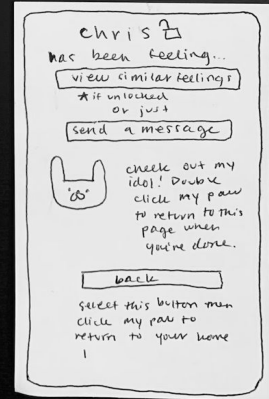 chris
has been feeling...
view similar feelings
*if unlocked
or just
send a message
check out my
idol! Double
click my paw
to return to this
page when
you're done.
back
select this button then
click my paw to
return to your home